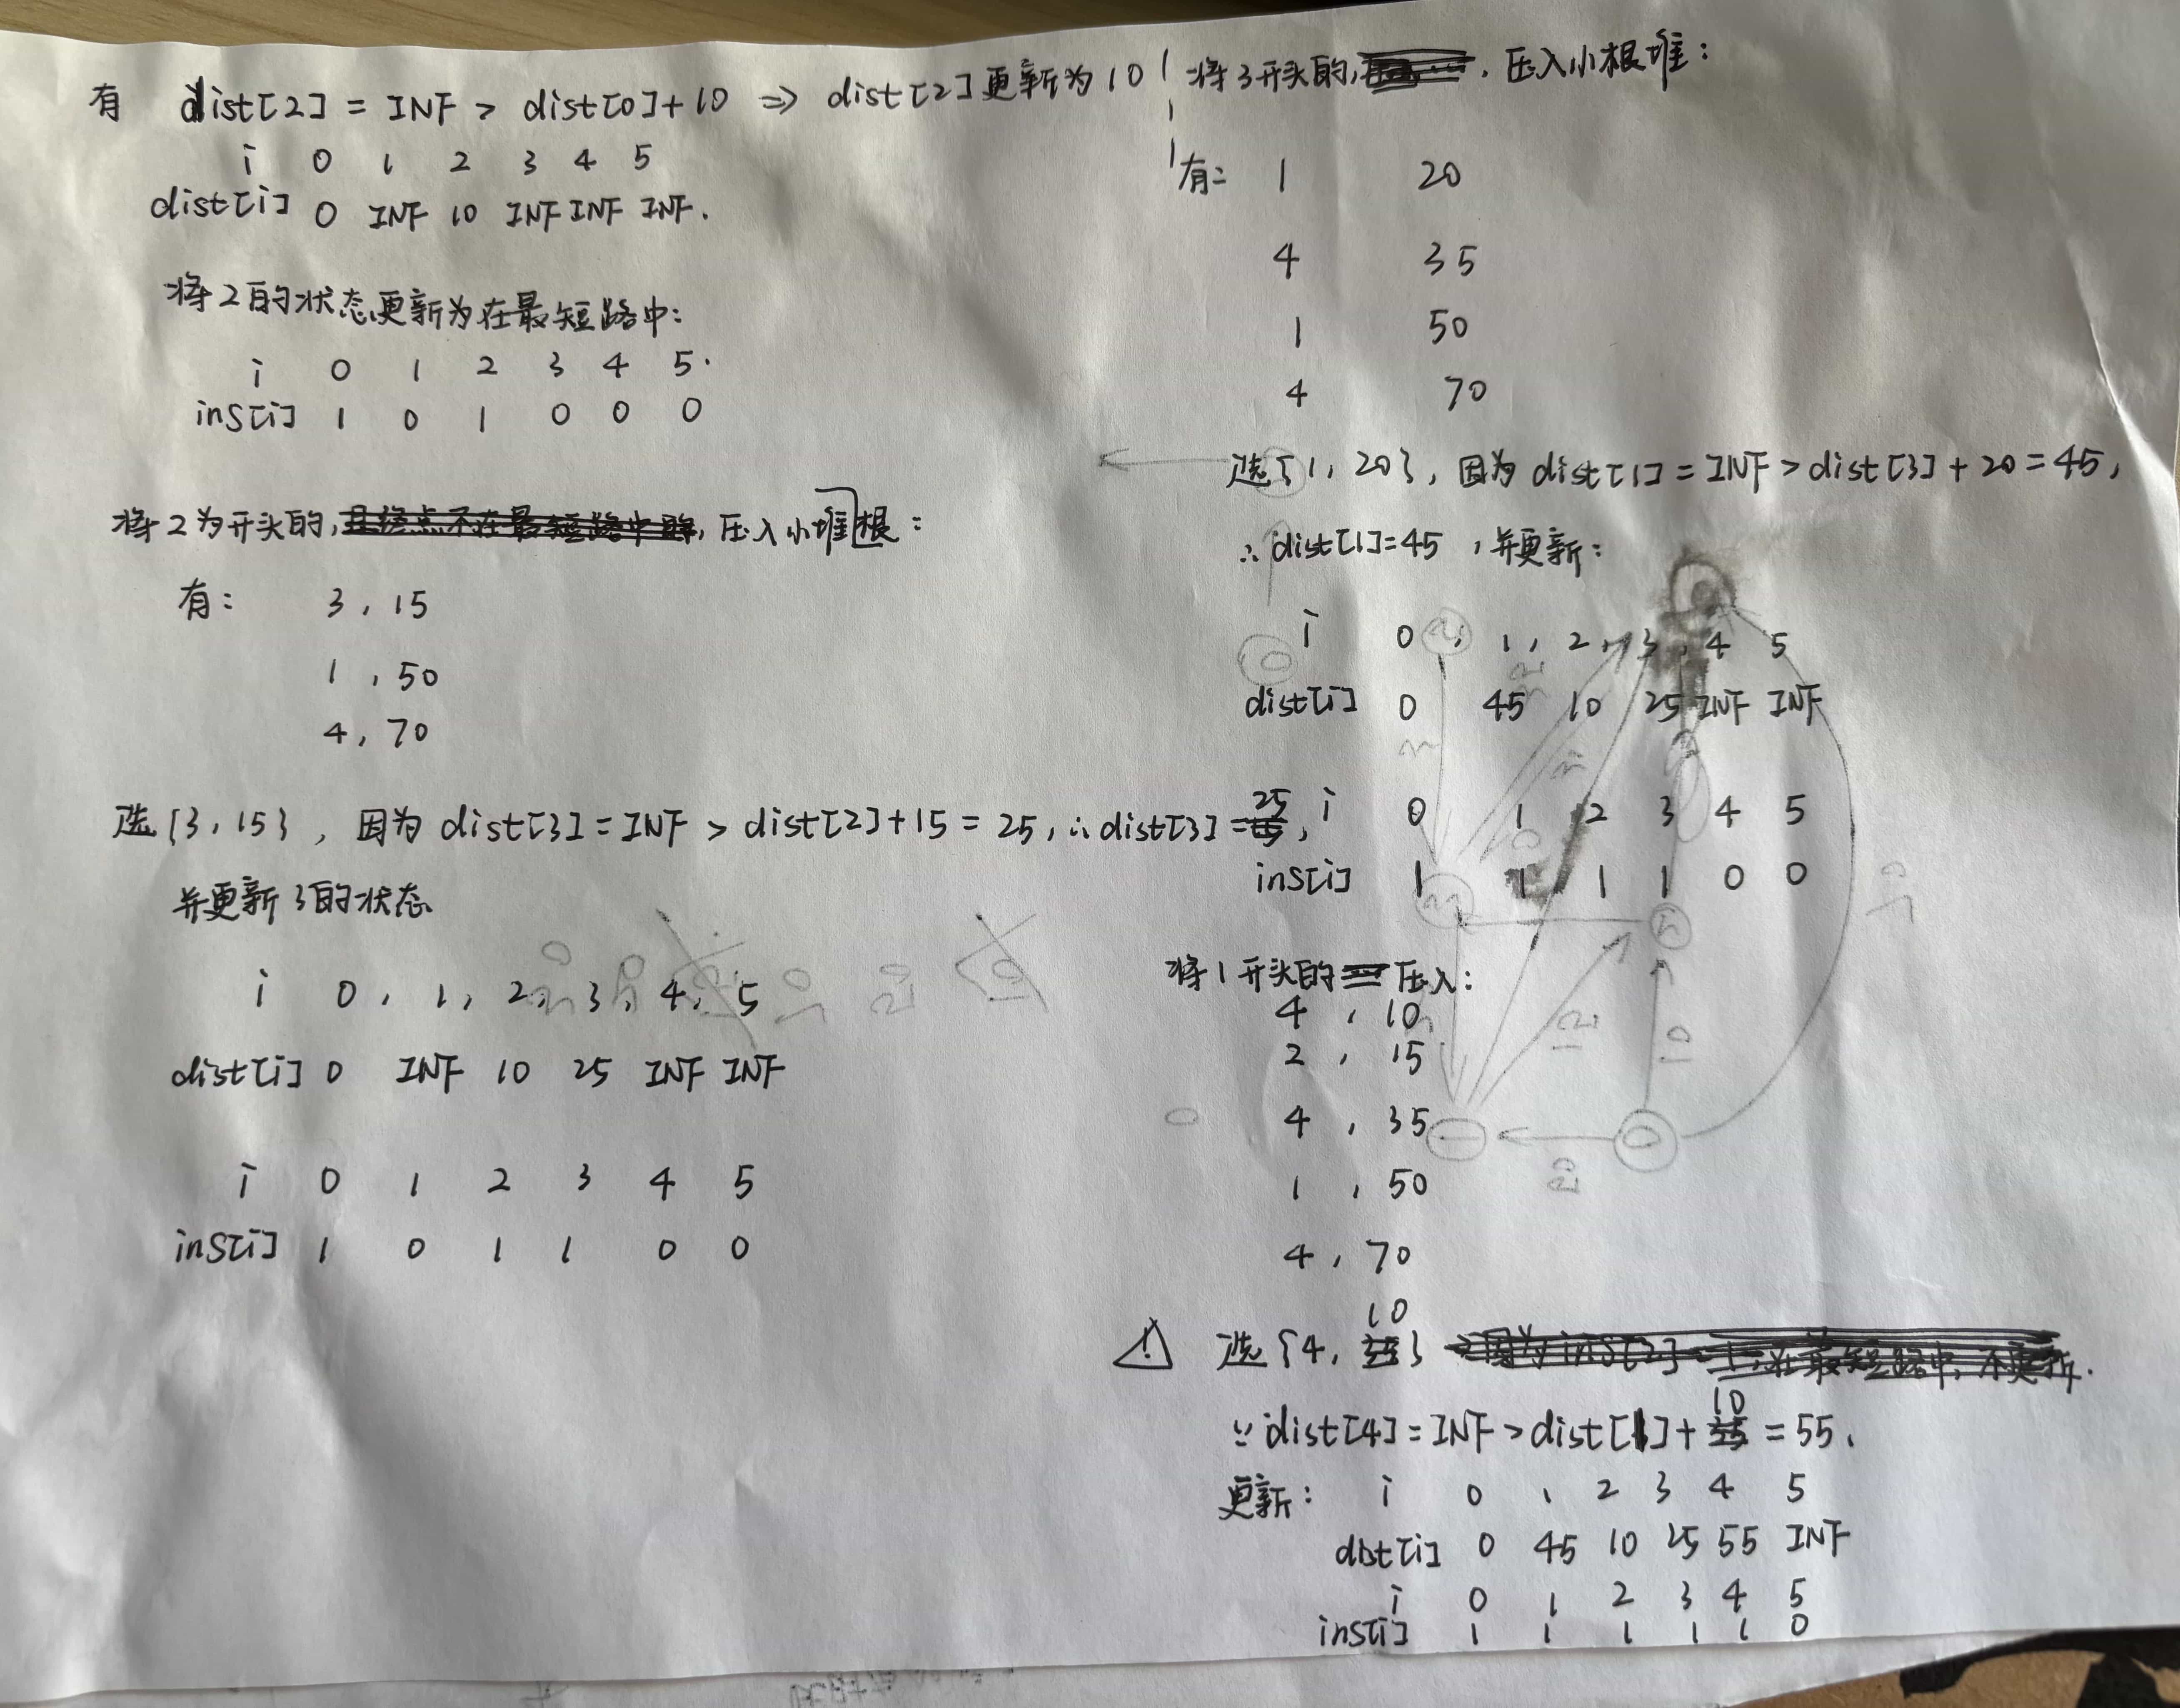 有 dist[2] = INF > dist[0]+10 ⇒ dist[2]更新为10
i 0 1 2 3 4 5
dist[i] 0 INF 10 INF INF INF.
将2的状态更新为在最短路中:
i 0 1 2 3 4 5.
inS[i] 1 0 1 0 0 0
将2为开头的,且终点不在最短路中的,压入小堆根:
有: 3, 15
1, 50
4, 70
选{3, 15}, 因为dist[3]=INF > dist[2]+15 = 25, ∴dist[3]=25,
并更新3的状态
i 0, 1, 2, 3, 4, 5
dist[i] 0 INF 10 25 INF INF
i 0 1 2 3 4 5
inS[i] 1 0 1 1 0 0
将3开头的, 压入小根堆:
有: 1 20
4 35
1 50
4 70
选{1, 20}, 因为dist[1]=INF>dist[3]+20=45,
∴dist[1]=45, 并更新:
i 0, 1, 2, 3, 4 5
dist[i] 0 45 10 25 INF INF
i 0 1 2 3 4 5
inS[i] 1 1 1 1 0 0
将1开头的压入:
4, 10
2, 15
4, 35
1, 50
4, 70
10
选{4, } 因为inS[2]=1,在最短路中,不更新.
10
∵dist[4]=INF>dist[1]+ =55,
更新: i 0 1 2 3 4 5
dist[i] 0 45 10 25 55 INF
i 0 1 2 3 4 5
inS[i] 1 1 1 1 1 0